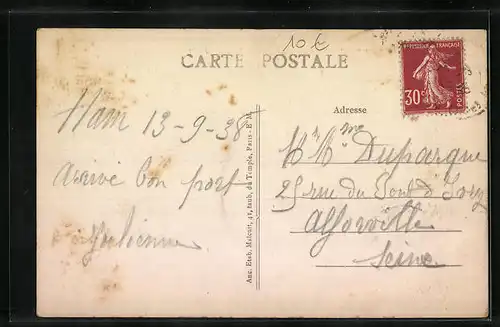 10 €
CARTE POSTALE
REPUBLIQUE FRANÇAISE
30c
POSTES
Ham 13-9-38
Arrivé bon port
Julienne
Anc. Etab. Malcuit, 41, faub. du Temple, Paris - E. M.
Adresse
Mr Mme Duparque
25 rue du Pont d'Ivry
Alforville
Seine